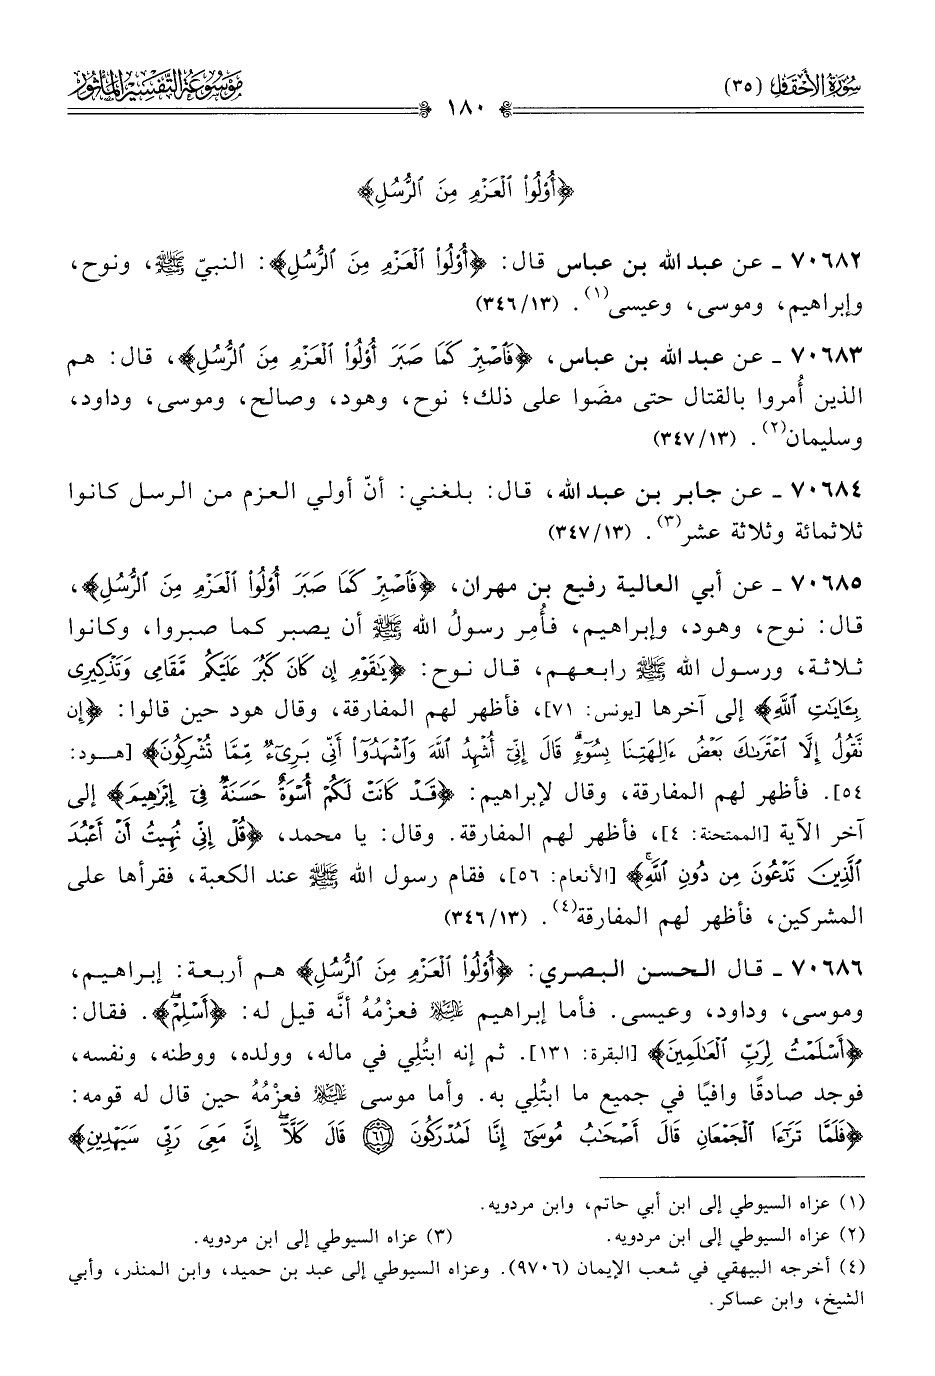 سُورَةُ الأَحْقَافِ (٣٥)
١٨٠
مَوْسُوعَةُ التَّفْسِيرِ المَأْثُورِ
﴿أُوْلُواْ ٱلۡعَزۡمِ مِنَ ٱلرُّسُلِ﴾
٧٠٦٨٢ ـ عن عبد الله بن عباس قال: ﴿أُوْلُواْ ٱلۡعَزۡمِ مِنَ ٱلرُّسُلِ﴾: النبيّ ﷺ، ونوح،
وإبراهيم، وموسى، وعيسى(١). (٣٤٦/١٣)
٧٠٦٨٣ ـ عن عبد الله بن عباس، ﴿فَٱصۡبِرۡ كَمَا صَبَرَ أُوْلُواْ ٱلۡعَزۡمِ مِنَ ٱلرُّسُلِ﴾، قال: هم
الذين أُمروا بالقتال حتى مضَوا على ذلك؛ نوح، وهود، وصالح، وموسى، وداود،
وسليمان(٢). (٣٤٧/١٣)
٧٠٦٨٤ ـ عن جابر بن عبد الله، قال: بلغني: أنّ أولي العزم من الرسل كانوا
ثلاثمائة وثلاثة عشر(٣). (٣٤٧/١٣)
٧٠٦٨٥ ـ عن أبي العالية رفيع بن مهران، ﴿فَٱصۡبِرۡ كَمَا صَبَرَ أُوْلُواْ ٱلۡعَزۡمِ مِنَ ٱلرُّسُلِ﴾،
قال: نوح، وهود، وإبراهيم، فأُمِر رسولُ الله ﷺ أن يصبر كما صبروا، وكانوا
ثلاثة، ورسول الله ﷺ رابعهم، قال نوح: ﴿يَٰقَوۡمِ إِن كَانَ كَبُرَ عَلَيۡكُم مَّقَامِي وَتَذۡكِيرِي
بِـَٔايَٰتِ ٱللَّهِ﴾ إلى آخرها [يونس: ٧١]، فأظهر لهم المفارقة، وقال هود حين قالوا: ﴿إِن
نَّقُولُ إِلَّا ٱعۡتَرَىٰكَ بَعۡضُ ءَالِهَتِنَا بِسُوٓءٖۗ قَالَ إِنِّيٓ أُشۡهِدُ ٱللَّهَ وَٱشۡهَدُوٓاْ أَنِّي بَرِيٓءٞ مِّمَّا تُشۡرِكُونَ﴾ [هود:
٥٤]. فأظهر لهم المفارقة، وقال لإبراهيم: ﴿قَدۡ كَانَتۡ لَكُمۡ أُسۡوَةٌ حَسَنَةٞ فِيٓ إِبۡرَٰهِيمَ﴾ إلى
آخر الآية [الممتحنة: ٤]، فأظهر لهم المفارقة. وقال: يا محمد، ﴿قُلۡ إِنِّي نُهِيتُ أَنۡ أَعۡبُدَ
ٱلَّذِينَ تَدۡعُونَ مِن دُونِ ٱللَّهِۚ﴾ [الأنعام: ٥٦]، فقام رسول الله ﷺ عند الكعبة، فقرأها على
المشركين، فأظهر لهم المفارقة(٤). (٣٤٦/١٣)
٧٠٦٨٦ ـ قال الحسن البصري: ﴿أُوْلُواْ ٱلۡعَزۡمِ مِنَ ٱلرُّسُلِ﴾ هم أربعة: إبراهيم،
وموسى، وداود، وعيسى. فأما إبراهيم عليه السلام فعزْمُهُ أنَّه قيل له: ﴿أَسۡلِمۡۖ﴾. فقال:
﴿أَسۡلَمۡتُ لِرَبِّ ٱلۡعَٰلَمِينَ﴾ [البقرة: ١٣١]. ثم إنه ابتُلِي في ماله، وولده، ووطنه، ونفسه،
فوجد صادقًا وافيًا في جميع ما ابتُلِي به. وأما موسى عليه السلام فعزْمُهُ حين قال له قومه:
﴿فَلَمَّا تَرَٰٓءَا ٱلۡجَمۡعَانِ قَالَ أَصۡحَٰبُ مُوسَىٰٓ إِنَّا لَمُدۡرَكُونَ ٦١ قَالَ كَلَّآۖ إِنَّ مَعِيَ رَبِّي سَيَهۡدِينِ﴾
(١) عزاه السيوطي إلى ابن أبي حاتم، وابن مردويه.
(٢) عزاه السيوطي إلى ابن مردويه. (٣) عزاه السيوطي إلى ابن مردويه.
(٤) أخرجه البيهقي في شعب الإيمان (٩٧٠٦). وعزاه السيوطي إلى عبد بن حميد، وابن المنذر، وأبي
الشيخ، وابن عساكر.